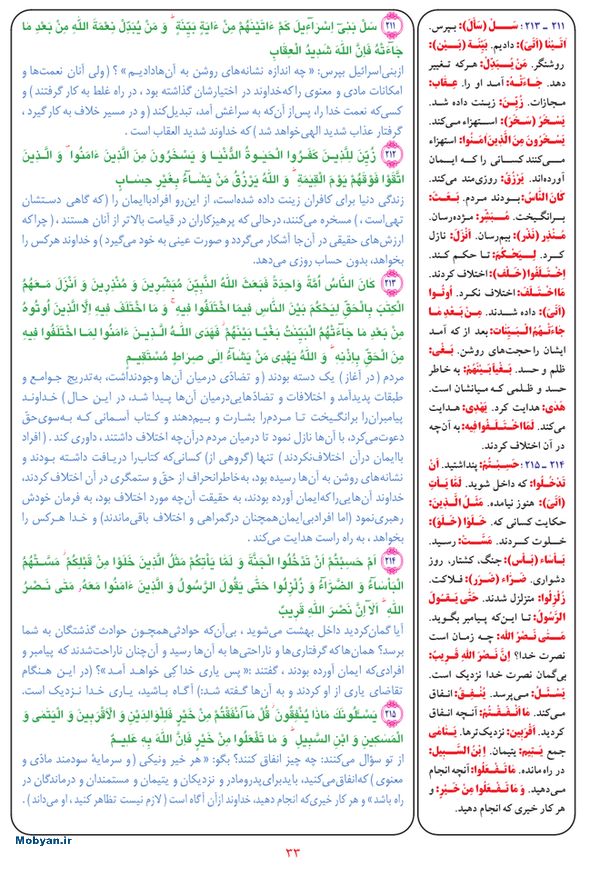 ۲۱۱ ـ ۲۱۳: سَــلْ (سَأَلَ): بپرس.
اٰتَیْنٰا (أتَیَ): دادیم. بَیِّنَة (بَیِّنْ):
روشنگر. مَنْ یُبَدِّلْ: هرکه تغییر
دهد. جٰاءَتْـهُ: آمد او را. عِقٰابِ:
مجازات. زُیِّنَ: زینت داده شد.
یَسْخَرُ (سَخَرَ): استهزاء می‌کند.
یَسْخَرُونَ مِنَ الَّذینَ اٰمَنُوا: استهزاء
می‌کنند کسانی را که ایمان
آورده‌اند. یَرْزُقُ: روزی‌مند می‌کند.
کٰانَ النّٰاسُ: بودند مردم. بَعَثَ:
برانگیخت. مُبَشِّر: مژده‌رسان.
مُنْذِر (نَذَر): بیم‌رسان. أَنْزَلَ: نازل
کرد. لِیَحْکُمَ: تا حکم کند.
إِخْتَلَفُوا (خَلَفَ): اختلاف کردند.
مَا اخْتَلَفَ: اختلاف نکرد. اُوتُوا
(أتَیَ): داده شدند. مِنْ بَعْدِ مٰا
جٰاءَتْهُمُ الْبَیِّنٰاتُ: بعد از که آمد
ایشان را حجت‌های روشن. بَغْی:
ظلم و حسد. بَغْیاً بَیْنَهُمْ: به خاطر
حسد و ظلمی که میانشان است.
هَدَی: هدایت کرد. یَهْدِی: هدایت
می‌کند. لِمَا اخْتَـلَـفُوا فیهِ: به آن‌چه
در آن اختلاف کردند.
۲۱۴ ـ ۲۱۵: حَسِبْتُمْ: پنداشتید. أَنْ
تَدْخُلُوا: که داخل شوید. لَمّٰا یَأْتِ
(أتَیَ): هنوز نیامده. مَثَلُ الَّذینَ:
حکایت کسانی که. خَلَوْا (خَلَوَ):
خلوت کردند. مَسَّتْ: رسید.
بَأسٰاء (بَأس): جنگ، کشتار، روز
دشواری. ضَرّٰاء (ضَرَرَ): فلاکت.
زُلْزِلُوا: متزلزل شدند. حَتّٰی یَقُولَ
الرَّسُولُ: تا این‌که پیامبر بگوید.
مَـتٰی نَصْرُ اللهِ: چه زمان است
نصرت خدا؟ إِنَّ نَصْرَ اللهِ قَریبٌ:
بی‌گمان نصرت خدا نزدیک است.
یَسْئَلُ: می‌پرسد. یُنْفِقُ: انفاق
می‌کند. مٰا أَنْفَقْتُمْ: آنچه انفاق
کردید. أَقْرَبینَ: نزدیک‌ترها. یَتٰامٰی
جمع یَتیم: یتیمان. إِبْنِ السَّبیلِ:
در راه مانده. مٰا تَفْعَلُوا: آنچه انجام
می‌دهید. وَ مٰا تَفْعَلُوا مِنْ خَیْرٍ: و
هر کار خیری که انجام دهید.
۲۱۱ سَلْ بَنی‌ٓ اِسْرآءیلَ کَمْ ءَاتَیْنٰهُمْ مِنْ ءَایَةٍ بَیِّنَةٍ ۗ وَ مَنْ یُبَدِّلْ نِعْمَةَ اللهِ مِنْ بَعْدِ مٰا
جٰآءَتْهُ فَاِنَّ اللهَ شَدیدُ الْعِقٰابِ
ازبنی‌اسرائیل بپرس: « چه اندازه نشانه‌های روشن به آن‌هادادیم» ؟ ( ولی آنان نعمت‌ها و
امکانات مادی و معنوی را که‌خداوند در اختیارشان گذاشته بود ، در راه غلط به کار گرفتند ) و
کسی‌که نعمت خدا را، پس‌از آن‌که به سراغش آمد، تبدیل‌کند ( و در مسیر خلاف به کار گیرد ،
گرفتار عذاب شدید الهی‌خواهد شد ) که خداوند شدید العقاب است .
۲۱۲ زُیِّنَ لِلَّذینَ کَفَرُوا الْحَیٰوةُ الدُّنْیٰا وَ یَسْخَرُونَ مِنَ الَّذینَ ءَامَنُوا ۘ وَ الَّذینَ
اتَّقَوْا فَوْقَهُمْ یَوْمَ الْقِیٰمَةِ ۗ وَ اللهُ یَرْزُقُ مَنْ یَشٰٓاءُ بِغَیْرِ حِسٰابٍ
زندگی دنیا برای کافران زینت داده شده‌است، از این‌رو افرادباایمان را ( که گاهی دستشان
تهی‌است ) ، مسخره می‌کنند، درحالی که پرهیزکاران در قیامت بالاتر از آنان هستند ، ( چرا که
ارزش‌های حقیقی در آن‌جا آشکار می‌گردد و صورت عینی به خود می‌گیرد ) و خداوند هرکس را
بخواهد، بدون حساب روزی می‌دهد.
۲۱۳ کٰانَ النّٰاسُ اُمَّةً وٰاحِدَةً فَبَعَثَ اللهُ النَّبِیِّینَ مُبَشِّرینَ وَ مُنْذِرینَ وَ اَنْزَلَ مَعَهُمُ
الْکِتٰبَ بِالْحَقِّ لِیَحْکُمَ بَیْنَ النّٰاسِ فیمَا اخْتَلَفُوا فیهِ ۚ وَ مَا اخْتَلَفَ فیهِ اِلَّا الَّذینَ اُوتُوهُ
مِنْ بَعْدِ مٰا جٰآءَتْهُمُ الْبَیِّنٰتُ بَغْیًا بَیْنَهُمْ ۖ فَهَدَی اللهُ الَّذینَ ءَامَنُوا لِمَا اخْتَلَفُوا فیهِ
مِنَ الْحَقِّ بِاِذْنِهِ ۗ وَ اللهُ یَهْدی مَنْ یَشٰٓاءُ اِلٰی صِراطٍ مُسْتَقیمٍ
مردم ( در آغاز ) یک دسته بودند ( و تضادّی درمیان آن‌ها وجودنداشت، به‌تدریج جوامع و
طبقات پدیدآمد و اختلافات و تضادّهایی‌درمیان آن‌ها پیدا شد، در این حال ) خداوند
پیامبران‌را برانگیخت تا مردم‌را بشارت و بیم‌دهند و کتاب آسمانی که به‌سوی‌حقّ
دعوت‌می‌کرد، با آن‌ها نازل نمود تا درمیان مردم درآن‌چه اختلاف داشتند ، داوری کند . ( افراد
باایمان درآن اختلاف‌نکردند ) تنها ( گروهی از ) کسانی‌که کتاب‌را دریافت داشته بودند و
نشانه‌های روشن به آن‌ها رسیده بود، به‌خاطرانحراف از حقّ و ستمگری در آن اختلاف کردند،
خداوند آن‌هایی‌را که‌ایمان آورده بودند، به حقیقت آن‌چه مورد اختلاف بود، به فرمان خودش
رهبری‌نمود ( اما افرادبی‌ایمان‌همچنان درگمراهی و اختلاف باقی‌ماندند ) و خدا هرکس را
بخواهد ، به راه راست هدایت می‌کند .
۲۱۴ اَمْ حَسِبْتُمْ اَنْ تَدْخُلُوا الْجَنَّةَ وَ لَمّٰا یَأْتِکُمْ مَثَلُ الَّذینَ خَلَوْا مِنْ قَبْلِکُمْ ۖ مَسَّتْهُمُ
الْبَأْسٰآءُ وَ الضَّرّٰآءُ وَ زُلْزِلُوا حَتّٰی یَقُولَ الرَّسُولُ وَ الَّذینَ ءَامَنُوا مَعَهُ مَتٰی نَصْرُ
اللهِ ۗ اَلٰآ اِنَّ نَصْرَ اللهِ قَریبٌ
آیا گمان‌کردید داخل بهشت می‌شوید ، بی‌آن‌که حوادثی‌همچون حوادث گذشتگان به شما
برسد؟ همان‌ها که گرفتاری‌ها و ناراحتی‌ها به آن‌ها رسید و آن‌چنان ناراحت‌شدند که پیامبر و
افرادی‌که ایمان آورده بودند ، گفتند :« پس یاری خدا کِی خواهد آمد »؟ ( در این هنگام
تقاضای یاری از او کردند و به آن‌ها گفته شد:) آگاه باشید، یاری خدا نزدیک است.
۲۱۵ یَسْئَلُونَکَ مٰاذٰا یُنْفِقُونَ ۖ قُلْ مٰآ اَنْفَقْتُمْ مِنْ خَیْرٍ فَلِلْوٰالِدَیْنِ وَ الْاَقْرَبینَ وَ الْیَتٰمٰی وَ
الْمَسٰکینِ وَ ابْنِ السَّبیلِ ۗ وَ مٰا تَفْعَلُوا مِنْ خَیْرٍ فَاِنَّ اللهَ بِهِ عَلیمٌ
از تو سؤال می‌کنند: چه چیز انفاق کنند؟ بگو: « هر خیر ونیکی ( و سرمایهٔ سودمند مادّی و
معنوی ) که‌انفاق‌می‌کنید، بایدبرای‌پدرومادر و نزدیکان و یتیمان و مستمندان و درماندگان در
راه باشد» و هر کار خیری‌که انجام دهید، خداوند ازآن آگاه است ( لازم نیست تظاهر کنید ، او می‌داند ) .
Mobyan.ir
۳۳